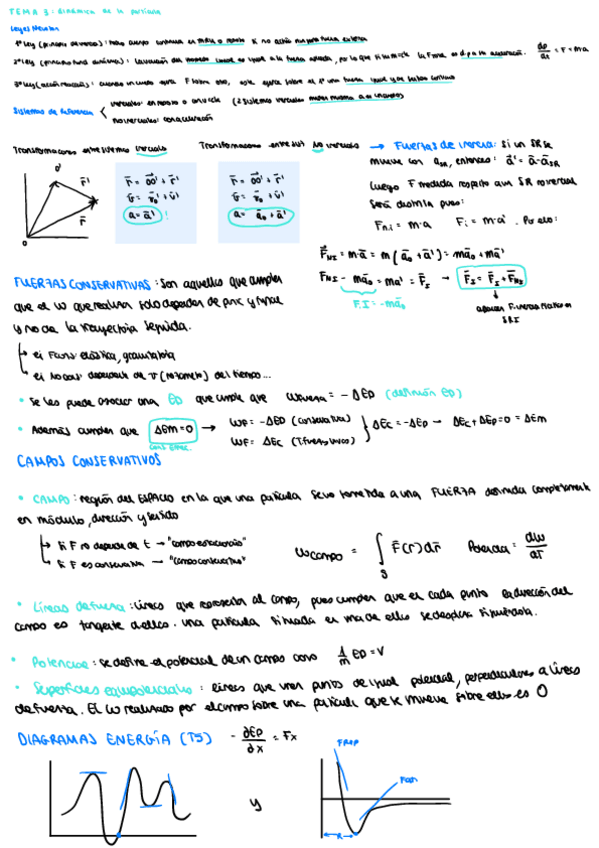 TEMA 3: dinámica de la partícula
Leyes Newton
1ª Ley (principio de inercia): todo cuerpo continua en MRU o reposo si no actúa ninguna fuerza externa
2ª Ley: la variación del momento lineal es igual a la fuerza aplicada, por lo que si la m es cte la F neta es d.p a la aceleración. dp/dt = F = m·a
3ª Ley (acción reacción): cuando un cuerpo ejerce F sobre otro, este ejerce sobre el 1º una fuerza igual y de sentido contrario
Sistemas de Referencia
inerciales: en reposo o a v cte (2 sistemas inerciales miden misma a en cuerpos)
no inerciales: con aceleración
Transformaciones entre sistemas inerciales
Transformaciones entre sist no inerciales → Fuerzas de inercia: si un SR se
mueve con a_SR, entonces: a' = a - a_SR
Luego F medida respecto a un SR no inercial
será distinta pues:
F_n.i = m·a F_i = m·a'. Por ello:
O'
r'
r
O
r = OO' + r'
v = v₀ + v'
a = a'!
r = OO' + r'
v = v₀ + v'
a = a₀ + a'
F_NI = m·a = m(a₀ + a') = ma₀ + ma'
F_NI - ma₀ = ma' = F_I → F_I = F_I + F_NI
F.I = -ma₀
FUERZAS CONSERVATIVAS: Son aquellas que cumplen
que el W que realizan solo depende de pinic y final
y no de la trayectoria seguida.
ej Fuerza elástica, gravitatoria
ej no cons: dependiente de v (rozamiento) del tiempo...
• Se les puede asociar una ED que cumple que W fuerza = -ΔEp (definición Ep)
• Además cumplen que ΔEm=0 → WF = -ΔEp (conservativa)
WF = ΔEc (T fuerzas vivas) } ΔEc = -ΔEp → ΔEc + ΔEp = 0 = ΔEm
CAMPOS CONSERVATIVOS
• CAMPO: región del ESPACIO en la que una partícula se ve sometida a una FUERZA definida completamente
en módulo, dirección y sentido
Si F no depende de t → "campo estacionario"
Si F es conservativa → "campo conservativo"
W campo = ∫ F(r)dr Potencia = dW/dT
• Líneas de fuerza: líneas que representan al campo, pues cumplen que en cada punto la dirección del
campo es tangente a ellos. Una partícula situada en una de ellas se desplaza siguiéndola.
• Potencial: se define el potencial de un campo como 1/m Ep = V
• Superficies equipotenciales: líneas que unen puntos de igual potencial, perpendiculares a líneas
de fuerza. El W realizado por el campo sobre una partícula que se mueve sobre ellas es 0
DIAGRAMAS ENERGÍA (T5) -∂Ep/∂x = Fx
y
F rep
F atr
R